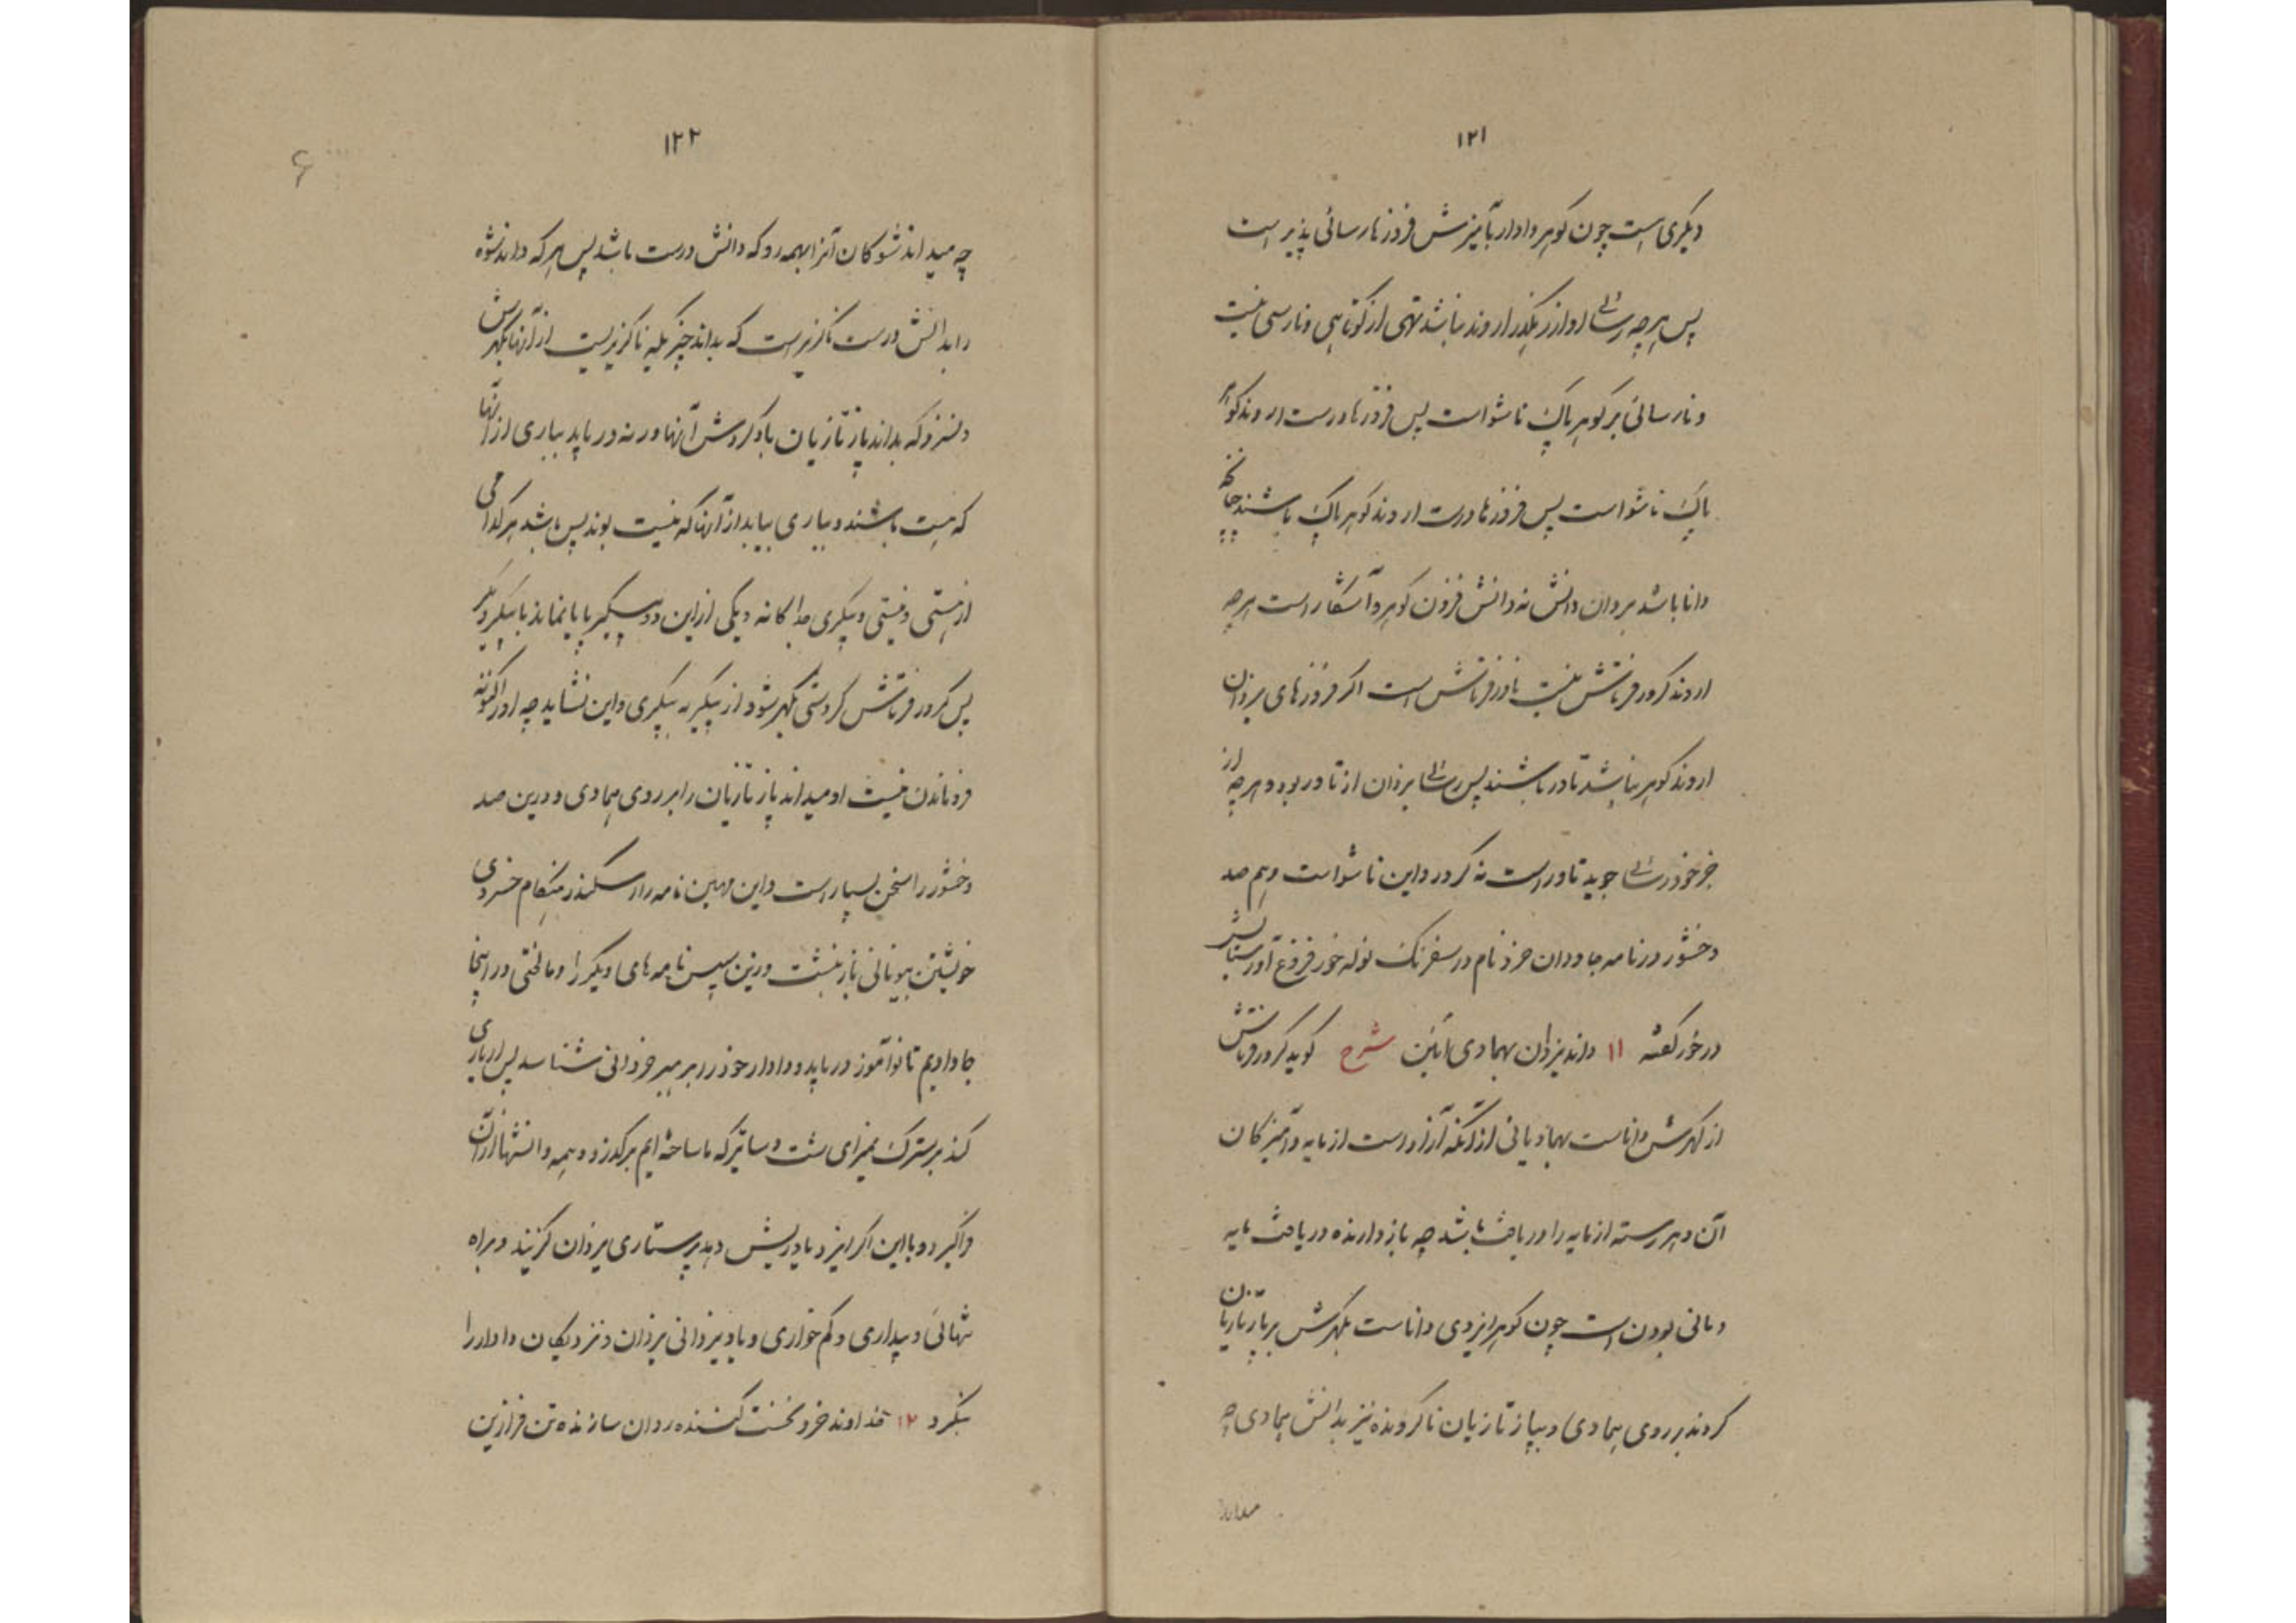 ۱۲۱
دیگری است چون گوهر دادار بآمیزش فروز نارسائی پذیر است
پس هرچه رسائی او از رهگذر اروند نباشد تهی از کوتاهی و نارسی نیست
و نارسائی بر گوهر پاک ناشو است پس فروزها درست اروند گوهر
پاک ناشو است پس فروزها درست اروند گوهر پاک باشند چنانکه
دانا باشد بروان دانش نه دانش فزون گوهر و آشکار است هرچه
اروند کرور فرتاش نیست باور فرتاش است اگر فروزهای یزدان
اروند گوهر نباشد تاور باشند پس رسائی یزدان از تاور بود و هرچه از
جز خود رسائی جوید تاور است نه کرور و این ناشو است و هم صد
وخشور در نامه جاودان خرد نام در سفرنگ نوله خور فروغ آور ستایش
در خور گفته ۱۱ داند یزدان بهمادی آئین شرح گوید کرور فرتاش
از گهرش داناست بهمادیانی از آنکه آزاد است از مایه و آمیزگان
آن و هر رسته از مایه را دریافت باشد چه بازدارنده دریافت مایه
و مانی بودن است چون گوهر ایزدی داناست بگهرش برپازتازیان
گروند بر روی هماوی و بپازتازیان ناگرونده نیز بدانش هماوی چه
میداند
۱۲۲
چه میداند شوکان آنرا بهمه رو که دانش درست باشد پس هر که داند شوه
را بدانش درست ناگزیر است که بداند چیزیکه ناگزیر است از آنها بگهرش
و نسزد که بداند پازتازیان با گردش آنها ور نه دریابد بباری از آنها
که هست باشند و بباری بیابد از آنها که نیست بوند پس باشد هر کدامی
از هستی و نیستی و پیکری جداگانه و یکی از این دو پیکر با پا نماند با پیکر دیگر
پس کرور فرتاش گردشی بگهر شود از پیکر به پیکری و این نشاید چه او را گونه
فروماندن نیست او میداند پازتازیان را بر روی هماوی و درین صد
وخشور را سخن بسیار است و این مهین نامه را سکندر هنگام خسروی
خویشتن بیونانی باز نبشت و زین سپس نامه‌های دیگر را و ما لختی در اینجا
جا دادیم تا نوآموز دریابد و دادار خود را برمیز خردانی شناسد پس ار یاری
کند بر سترگ نمیرای شت وساتیر که ما ساخته ایم برگذرد و همه دانشها از آن
فراگیرد و با این اگر ایزد یاوریش دهد پرستاری یزدان گزیند و براه
تنهائی و بیداری و کم خواری و یاد یزدانی یزدان و نزدیکان دادار را
بنگرد ۱۲ خداوند خرد نخست کننده روان سازنده تن فرازین